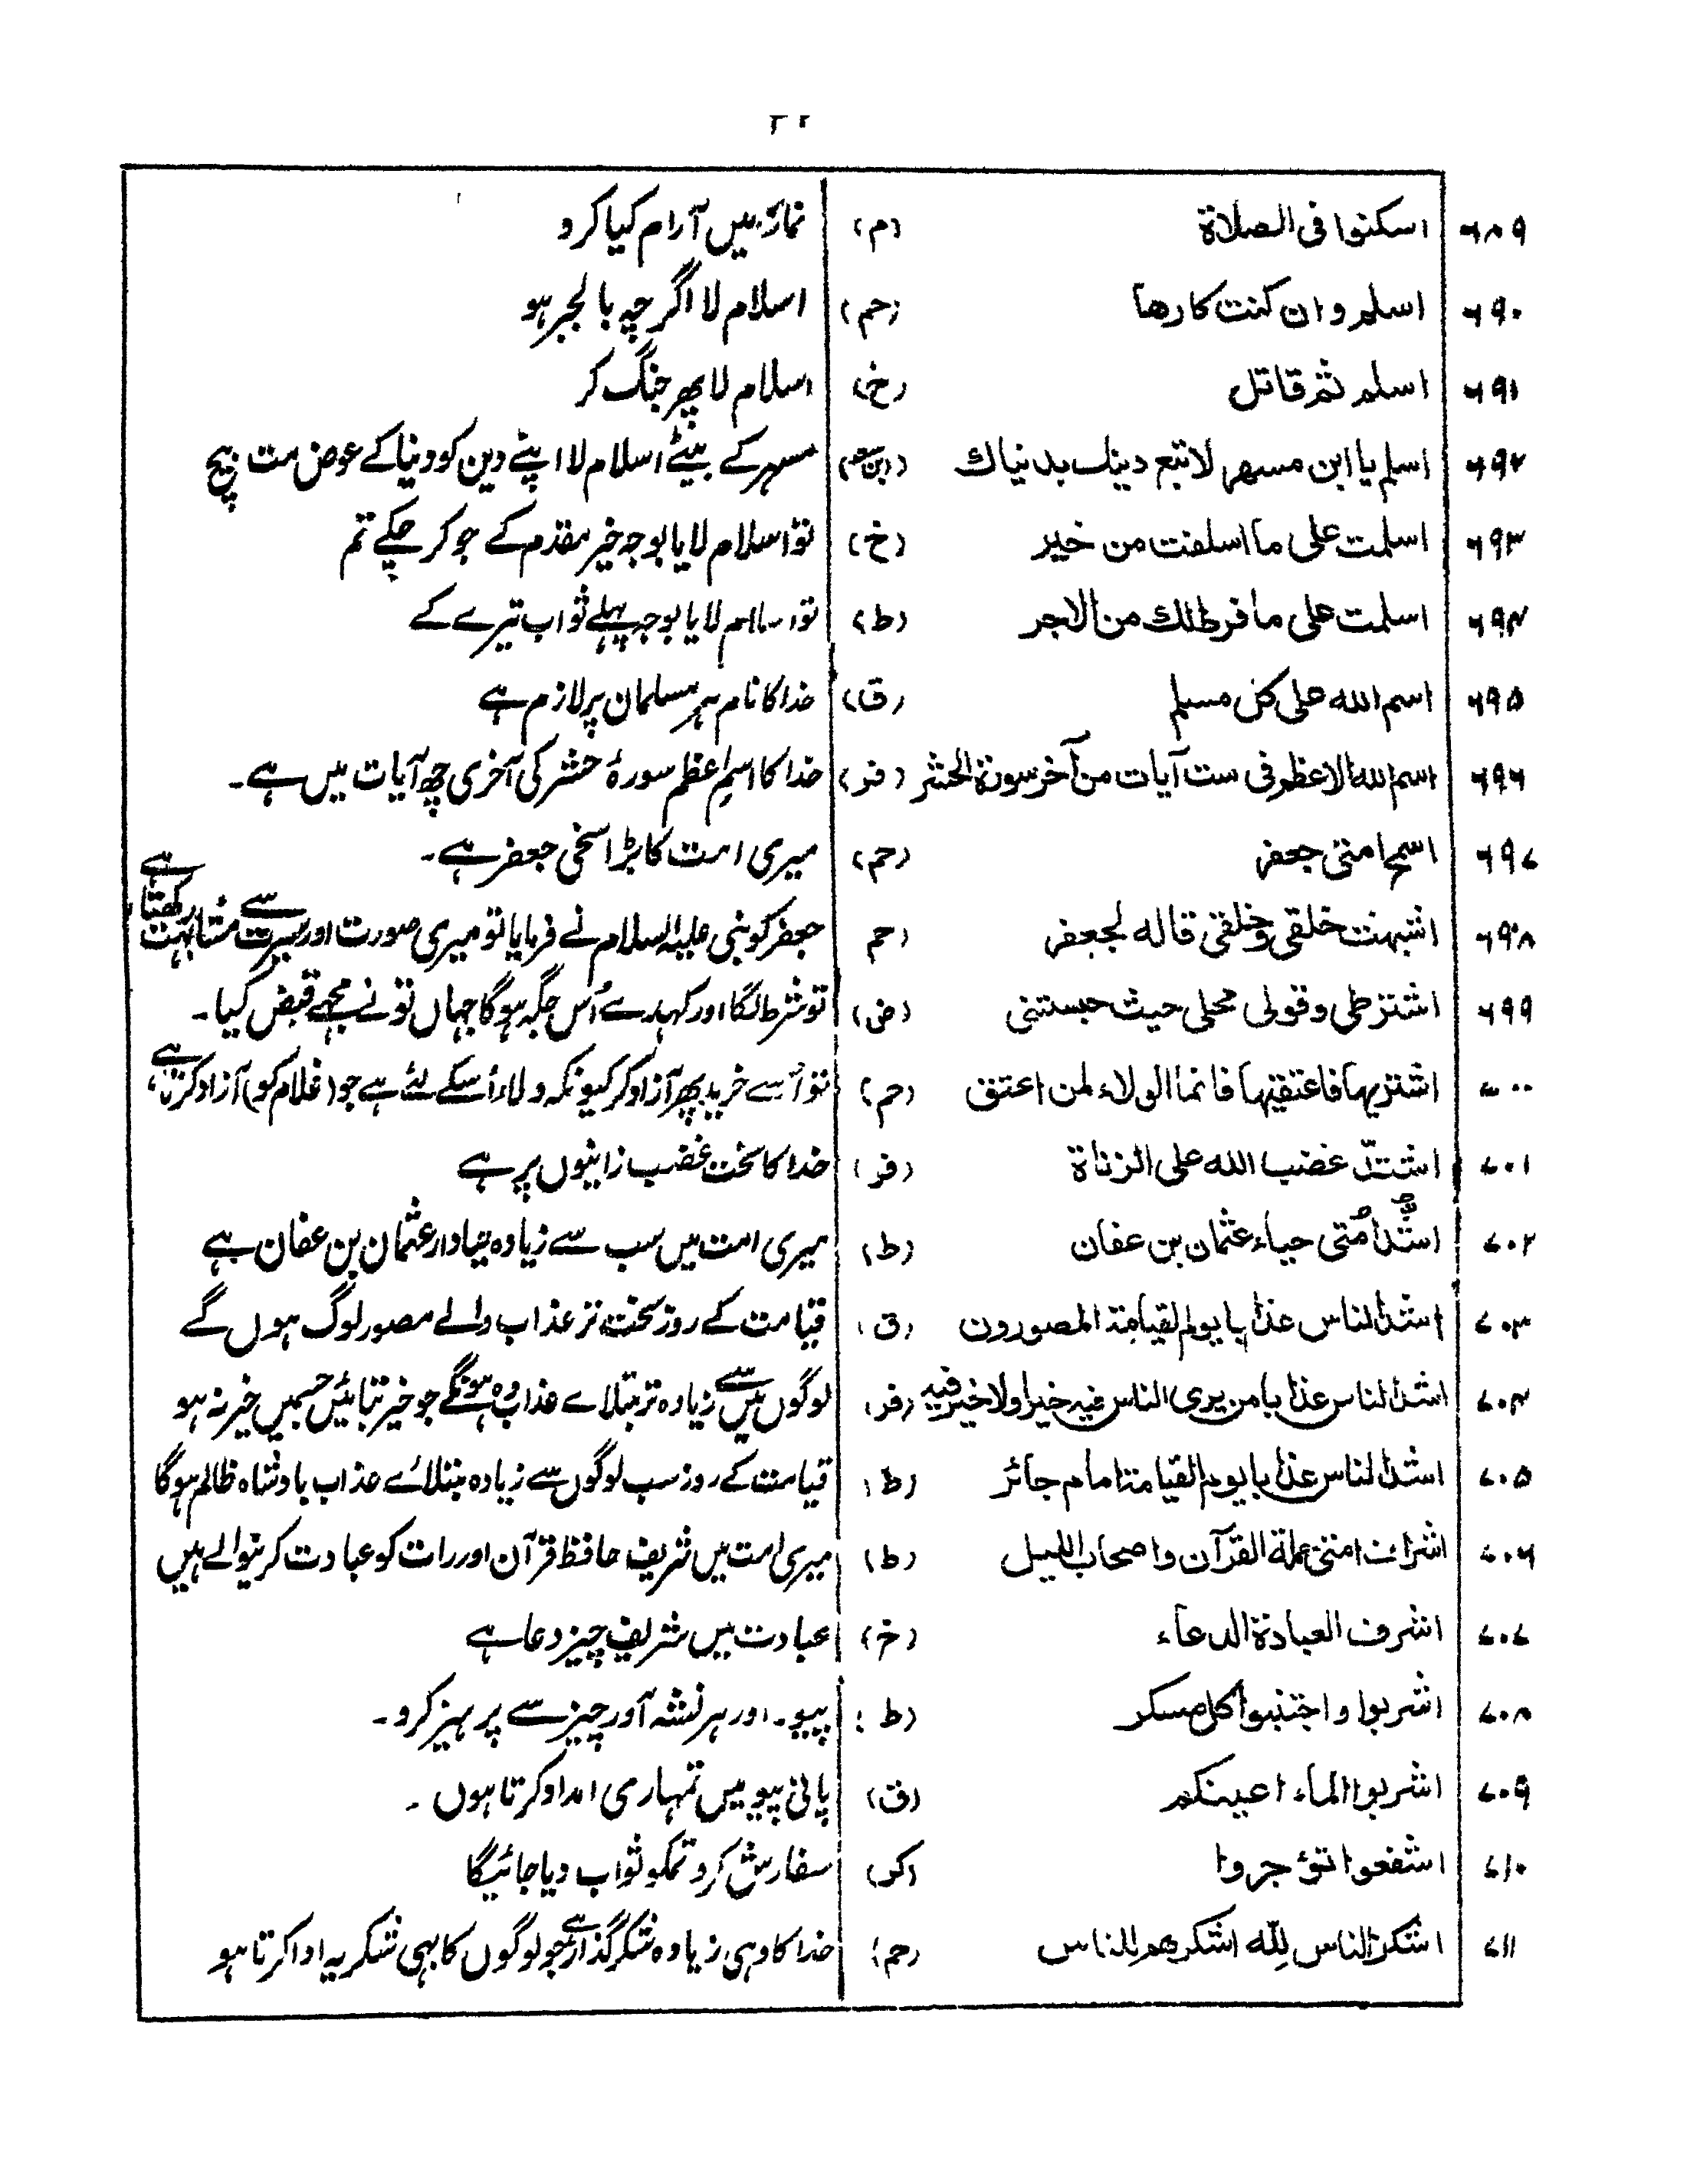 ۶۸۹ اسكنوا فى الصلاة (م) نماز میں آرام کیا کرو
۶۹۰ اسلم وان كنت كارها (حم) اسلام لا اگرچہ بالجبر ہو
۶۹۱ اسلم ثم قاتل (خ) اسلام لا پھر جنگ کر
۶۹۲ اسلم يا ابن مسهر لا تبع دينك بدنياك (ابن سعد) مسہر کے بیٹے اسلام لا اپنے دین کو دنیا کے عوض مت بیچ
۶۹۳ اسلمت على ما اسلفت من خير (خ) تو اسلام لایا بوجہ خیر مقدم کے جو کر چکے تم
۶۹۴ اسلمت على ما فرط لك من الاجر (ط) تو اسلام لایا بوجہ پہلے ثواب تیرے کے
۶۹۵ اسم الله على كل مسلم (ق) خدا کا نام ہر مسلمان پر لازم ہے
۶۹۶ اسم الله الاعظم فى ست آيات من آخر سورة الحشر (فر) خدا کا اسم اعظم سورۂ حشر کی آخری چھ آیات میں ہے۔
۶۹۷ اسمح امتى جعفر (حم) میری امت کا بڑا سخی جعفر ہے۔
۶۹۸ اشبهت خلقى وخلقى قاله لجعفر (حم جعفر کو نبی علیہ السلام نے فرمایا تو میری صورت اور سیرت سے مشابہت رکھتا ہے
۶۹۹ اشترطى وقولى محلى حيث حبستنى (ض) تو شرط لگا اور کہدے اُس جگہ ہوگا جہاں تو نے مجھے قبض کیا۔
۷۰۰ اشتريها فاعتقيها فانما الولاء لمن اعتق (حم) تو اُسے خرید پھر آزاد کر کیونکہ ولاء اُسکے لئے ہے جو (غلام کو) آزاد کرتا ہے
۷۰۱ اشتد غضب الله على الزناة (فر) خدا کا سخت غضب زانیوں پر ہے
۷۰۲ اشد امتى حياء عثمان بن عفان (ط) میری امت میں سب سے زیادہ حیادار عثمان بن عفان ہے
۷۰۳ اشد الناس عذابا يوم القيامة المصورون (ق) قیامت کے روز سخت تر عذاب والے مصور لوگ ہوں گے
۷۰۴ اشد الناس عذابا من يرى الناس فيه خيرا ولا خير فيه (فر) لوگوں میں سے زیادہ تر مبتلاے عذاب وہ ہونگے جو خیر بتائیں جسمیں خیر نہ ہو
۷۰۵ اشد الناس عذابا يوم القيامة امام جائر (ط) قیامت کے روز سب لوگوں سے زیادہ مبتلائے عذاب بادشاہ ظالم ہوگا
۷۰۶ اشراف امتى حملة القرآن واصحاب الليل (ط) میری امت میں شریف حافظ قرآن اور رات کو عبادت کرنیوالے ہیں
۷۰۷ اشرف العبادة الدعاء (خ) عبادت میں شریف چیز دعا ہے
۷۰۸ اشربوا واجتنبوا كل مسكر (ط) پیو۔ اور ہر نشہ آور چیز سے پرہیز کرو۔
۷۰۹ اشربوا الماء اعينكم (ق) پانی پیو میں تمہاری امداد کرتا ہوں۔
۷۱۰ اشفعوا تؤجروا (کر) سفارش کرو تمکو ثواب دیا جائیگا
۷۱۱ اشكر الناس لله اشكرهم للناس (حم) خدا کا وہی زیادہ شکرگذار ہے جو لوگوں کا بہی شکریہ ادا کرتا ہو